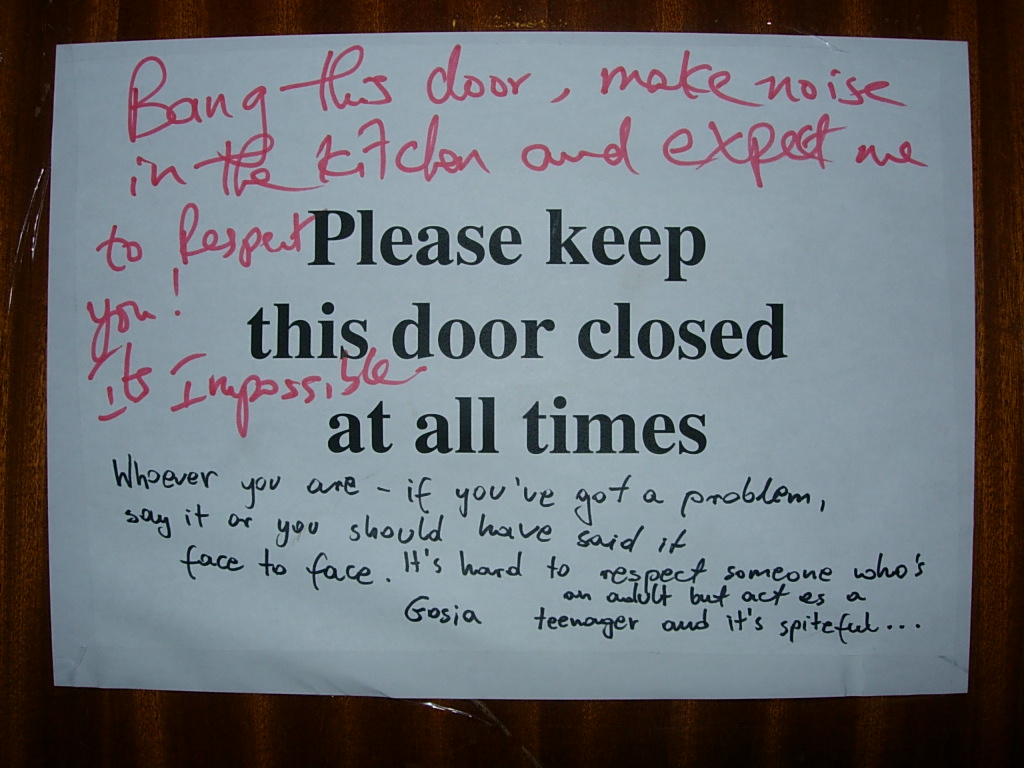 Bang this door, make noise
in the kitchen and expect me
to Respect
you!
its Impossible.
Please keep
this door closed
at all times
Whoever you are - if you've got a problem,
say it or you should have said it
face to face. It's hard to respect someone who's
an adult but act es a
teenager and it's spiteful...
Gosia